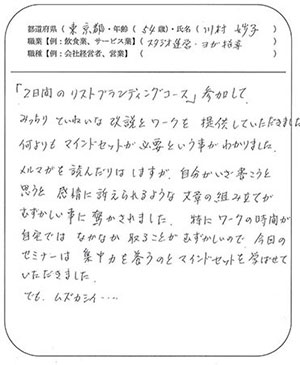 都道府県（東京都）・年齢（54歳）・氏名（川村 妙子）
職業【例：飲食業、サービス業】（スタジオ運営・ヨガ指導）
職種【例：会社経営者、営業】（　　）
「2日間のリストブランディングコース」参加して、
みっちり ていねいな 解説とワークを 提供していただきました
何よりも マインドセットが必要という事がわかりました。
メルマガを読んだりは しますが、自分がいざ書こうと
思うと 感情に訴えられるような 文章の組み立てが
むずかしい事に驚かされました。特にワークの時間が
自宅では なかなか 取ることが むずかしいので、今日の
セミナーは 集中力を養うのと マインドセットを学ばせて
いただきました。
でも、ムズカシイ……